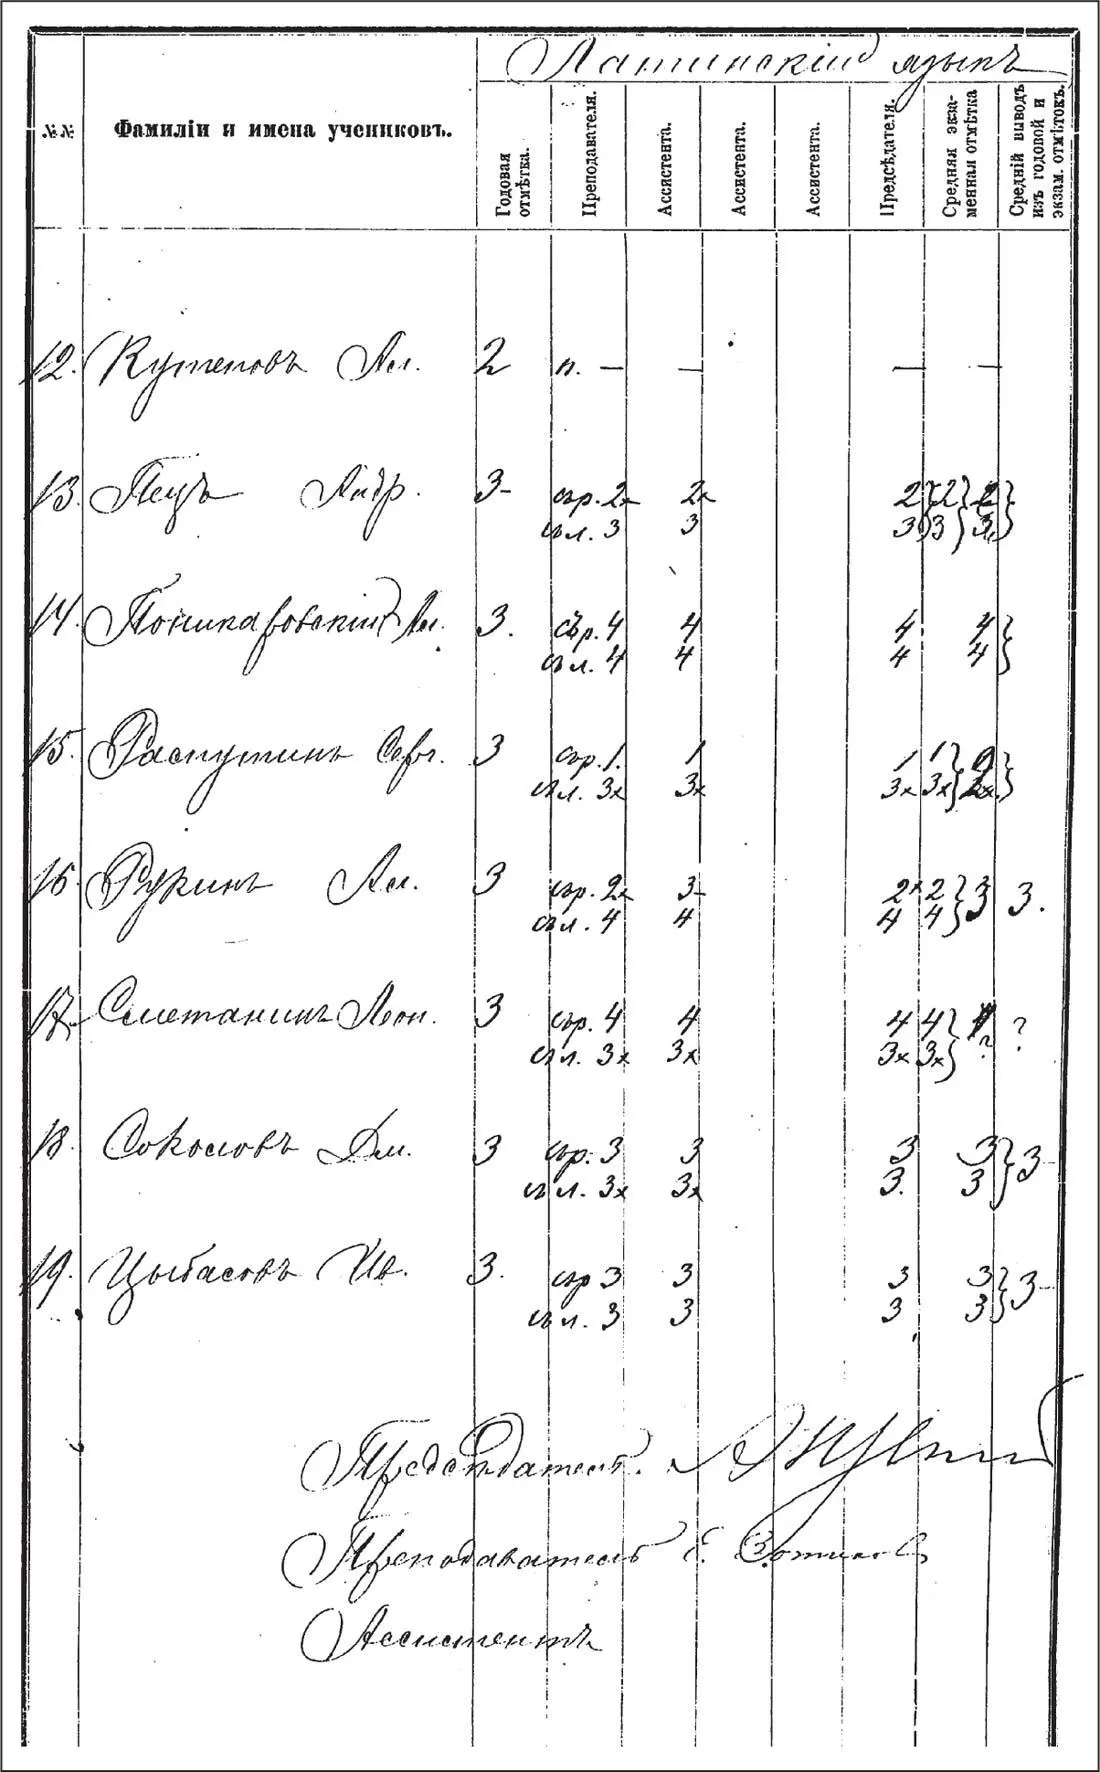 Латинскій языкъ
№№
Фамиліи и имена учениковъ.
Годовая отмѣтка.
Преподавателя.
Ассистента.
Ассистента.
Ассистента.
Предсѣдателя.
Средняя экзаменная отмѣтка
Средній выводъ изъ годовой и экзам. отмѣтокъ.
12. Кутеповъ Ал. 2 п. — — — —
13. Пецъ Андр. 3- ср. 2х 2х 2 2 2
сл. 3 3 3 3 3
14. Поникаровскій Ал. 3. ср. 4 4 4 4
сл. 4 4 4 4
15. Распутинъ Серг. 3 ср. 1. 1 1 1 2
сл. 3х 3х 3х 3х 2х
16. Рукинъ Ал. 3 ср. 2х 3- 2х 2 3 3.
сл. 4 4 4 4
17. Сметанинъ Леон. 3 ср. 4 4 4 4 ?
сл. 3х 3х 3х 3х ?
18. Соколовъ Дм. 3 ср. 3 3 3 3 3-
сл. 3х 3х 3. 3
19. Цыбасовъ Ив. 3. ср 3 3 3 3 3-
сл. 3 3 3 3
Предсѣдатель.
Преподаватель Е. Зотиков
Ассистентъ